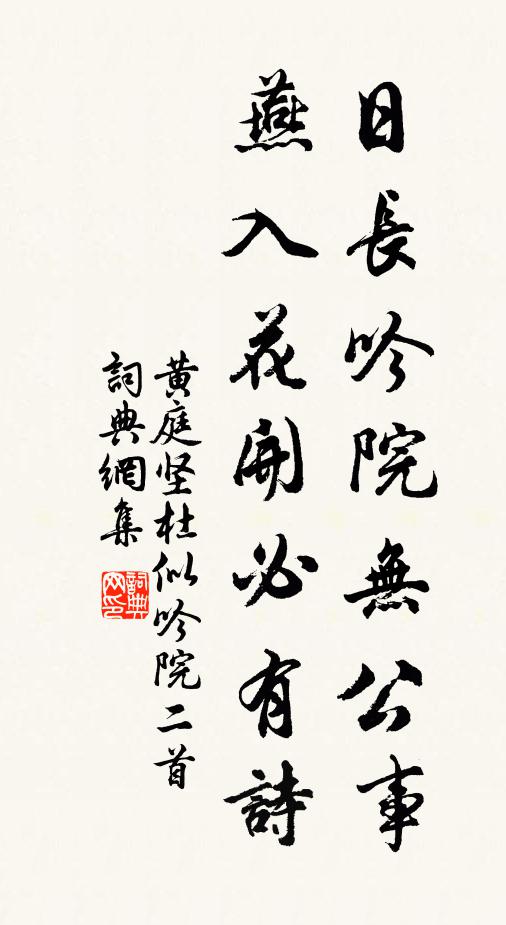 日長吟院無公事
燕入花開必有詩
黃庭坚杜似吟院二首
詞典網集
詞典网印